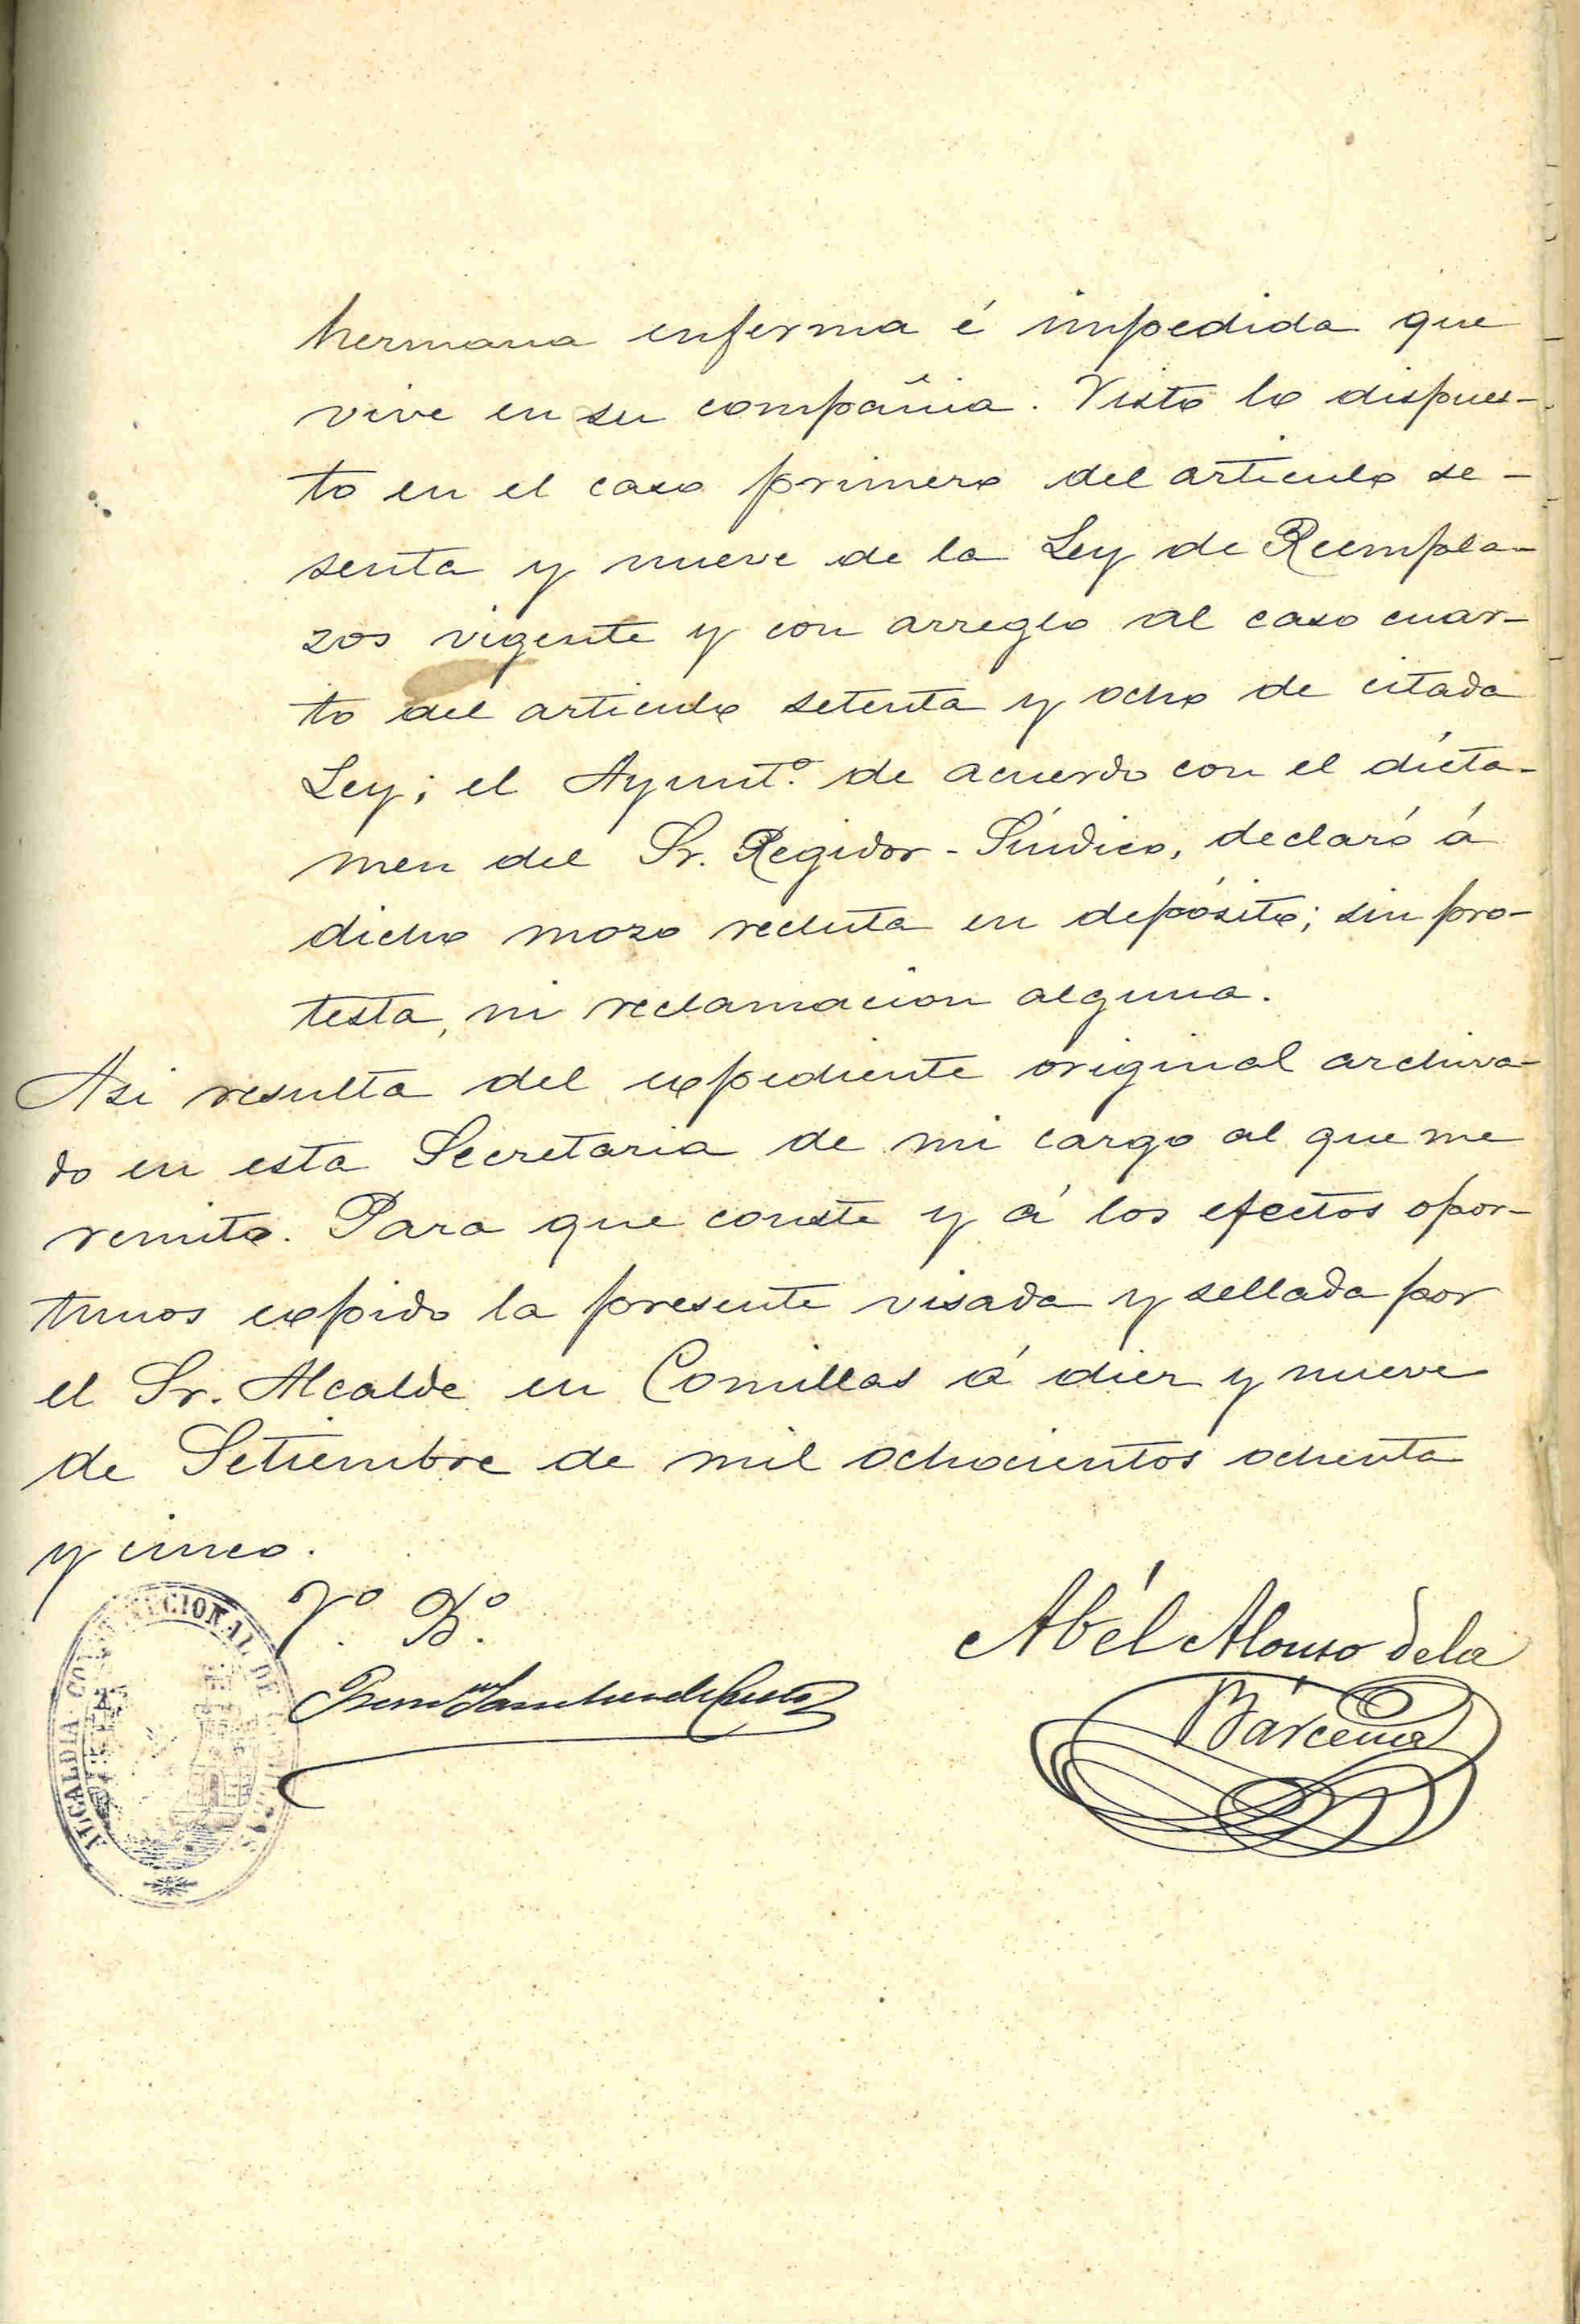 hermana enferma é impedida que
vive en su compañia. Visto lo dispues-
to en el caso primero del articulo se-
senta y nueve de la Ley de Reempla-
zos vigente y con arreglo al caso cuar-
to del articulo setenta y ocho de citada
Ley; el Ayuntº. de acuerdo con el dicta-
men del Sr. Regidor-Síndico, declaró á
dicho mozo recluta en depósito; sin pro-
testa, ni reclamacion alguna.
Asi resulta del expediente original archiva-
do en esta Secretaria de mi cargo al que me
remito. Para que conste y á los efectos opor-
tunos expido la presente visada y sellada por
el Sr. Alcalde en Comillas á diez y nueve
de Setiembre de mil ochocientos ochenta
y cinco.
Vº. Bº.
Abél Alonso de la
Bárcena
ALCALDIA CONSTITUCIONAL DE